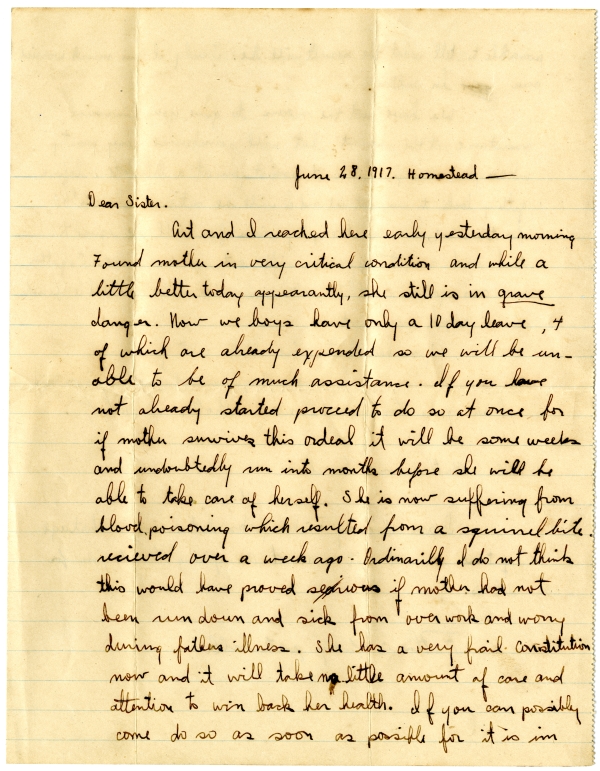 June 28. 1917. Homestead —
Dear Sister.
Art and I reached here early yesterday morning
Found mother in very critical condition and while a
little better today appearantly, she still is in grave
danger. Now we boys have only a 10 day leave, 4
of which are already expended so we will be un-
able to be of much assistance. If you have
not already started proceed to do so at once for
if mother survives this ordeal it will be some weeks
and undoubtedly run into months before she will be
able to take care of herself. She is now suffering from
blood poisoning which resulted from a squirrel bite.
recieved over a week ago. Ordinarily I do not think
this would have proved serious if mother had not
been run down and sick from over work and worry
during fathers illness. She has a very frail constitution
now and it will take no little amount of care and
attention to win back her health. If you can possibly
come do so as soon as possible for it is im